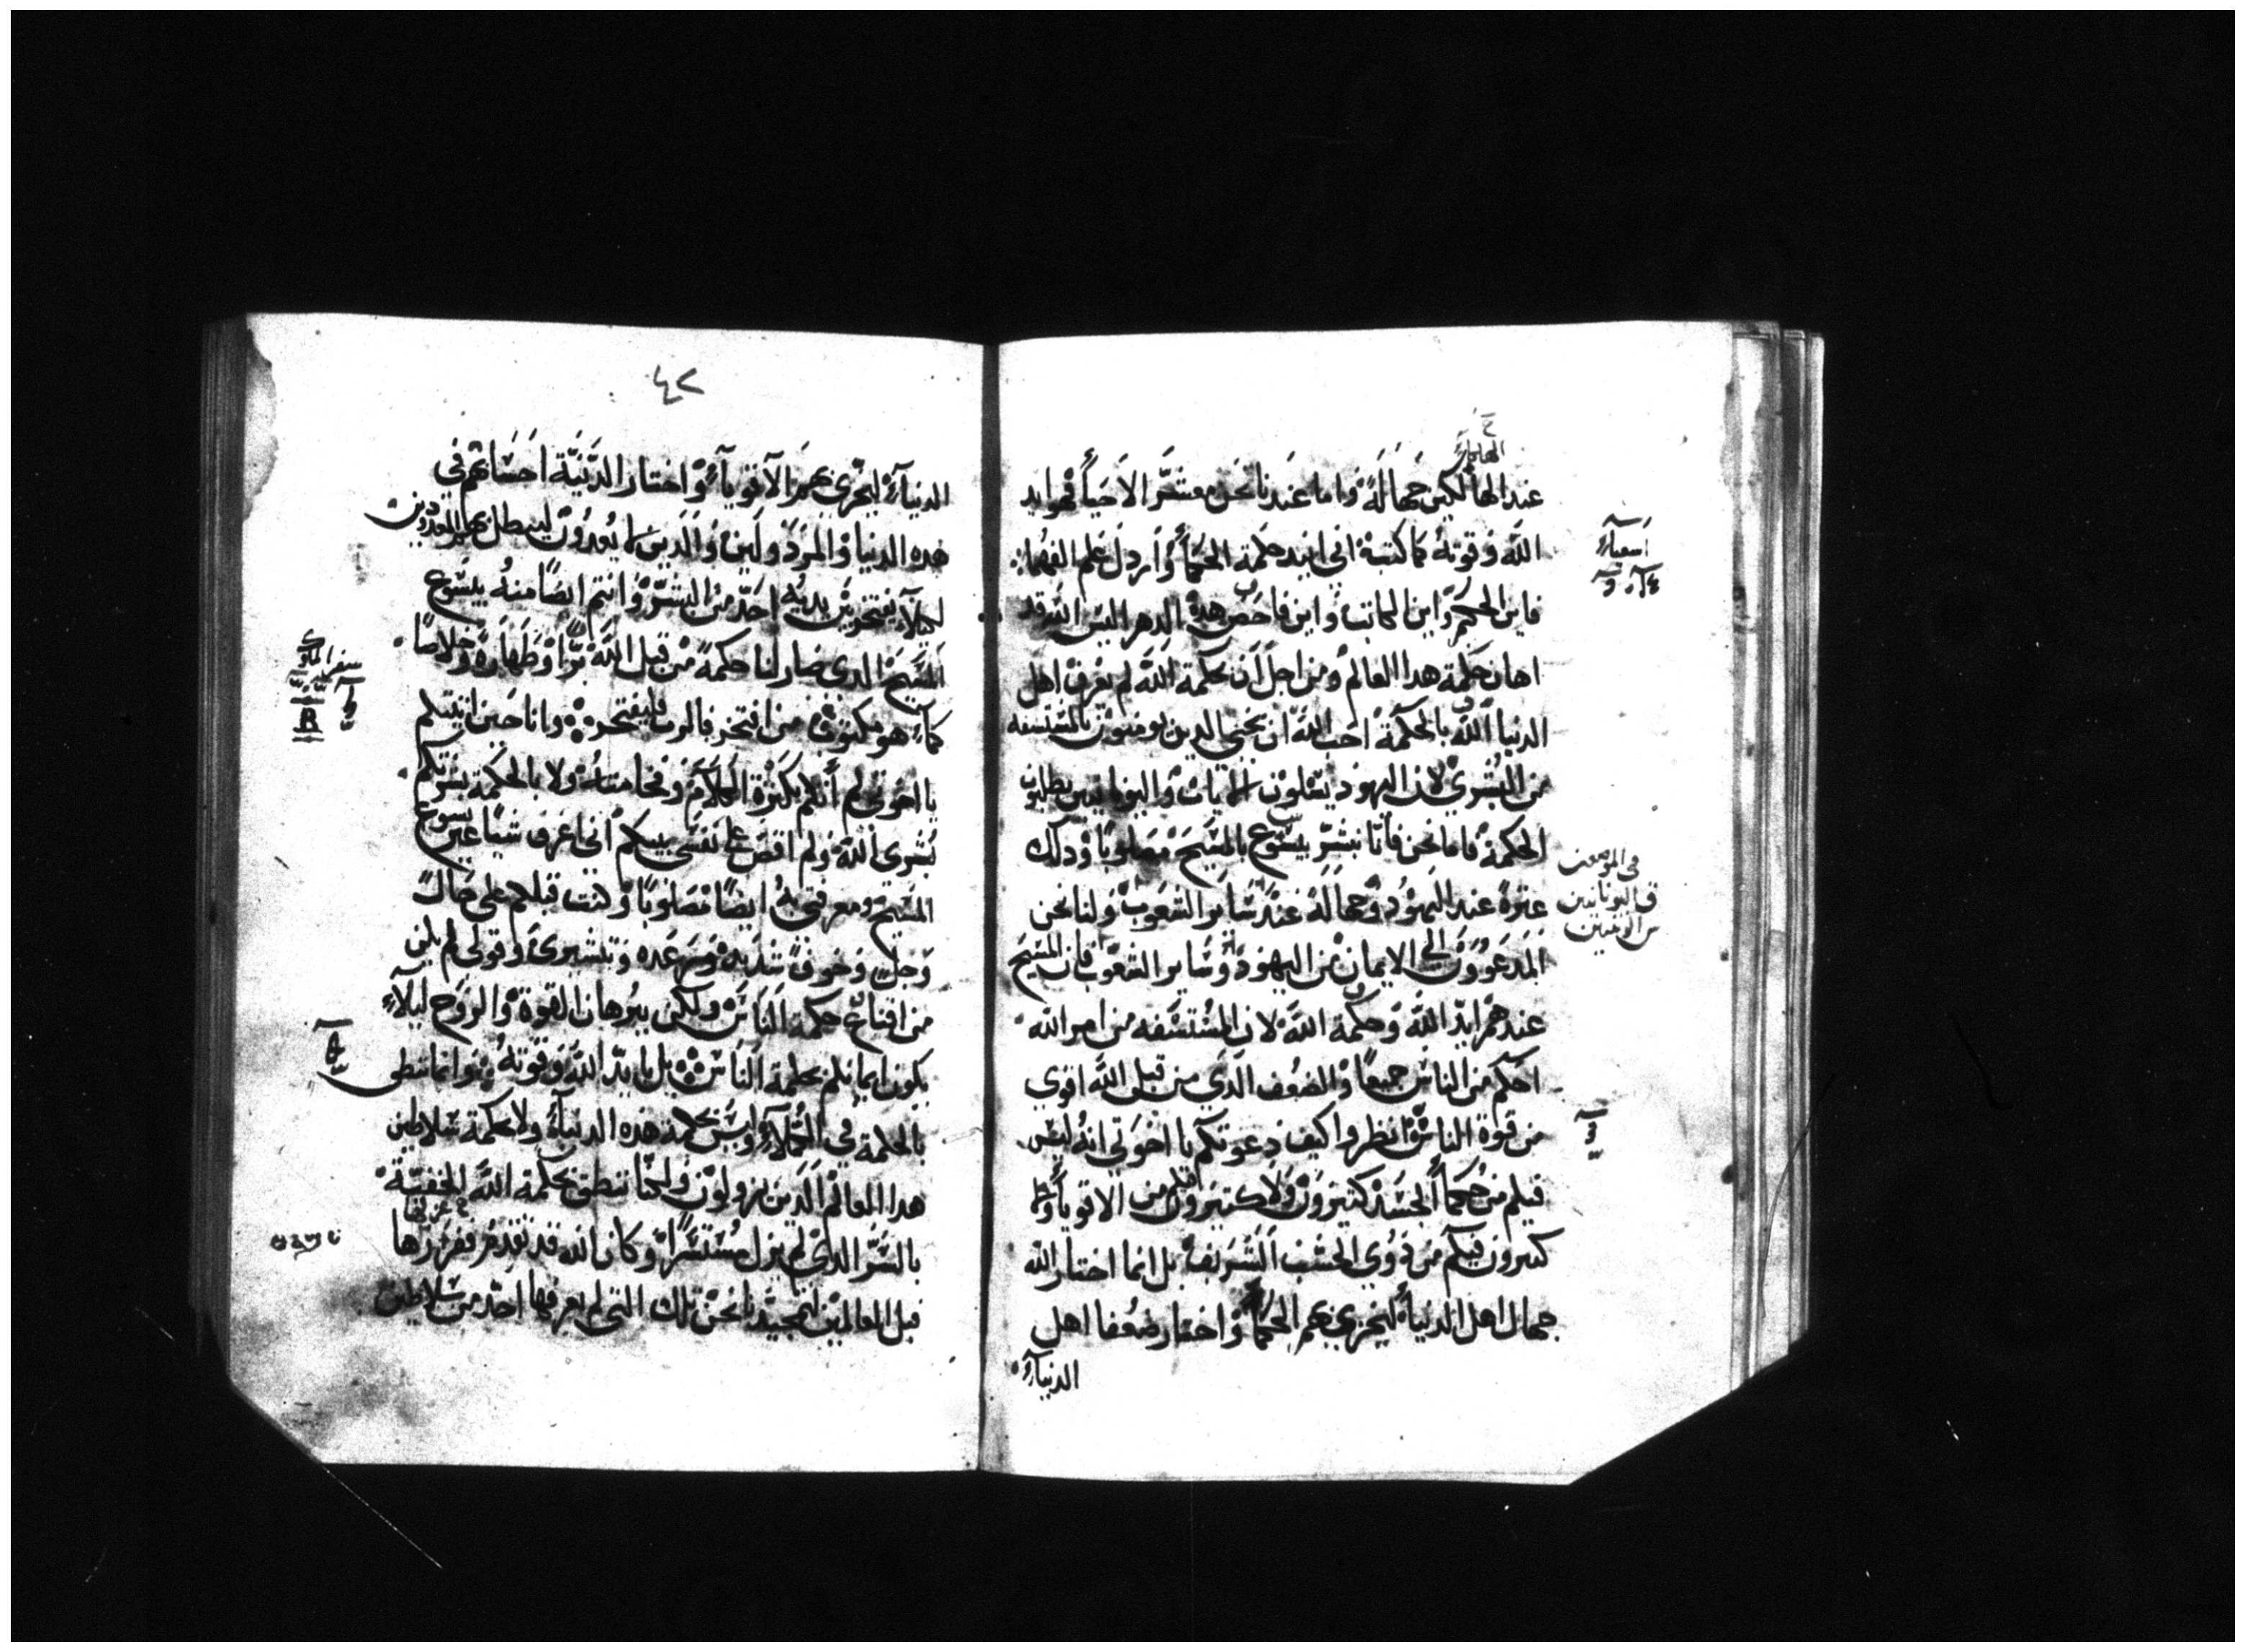 عند الهالكين جهالة واما عندنا نحن معشر الاحيا فهو ايد
الله وقوته كما كتب اني ابيد حكمة الحكما وارذل علم الفهما
فاين الحكيم واين الكاتب واين فاحص هذا الدهر اليس الله قد
اهان حكمة هدا العالم ومن اجل ان بحكمة الله لم يعرف اهل
الدنيا الله بالحكمة احب الله ان يحيي الدين يومنون
من البشري لان اليهود يسلون الايات واليونانيين يطلبون
الحكمة فاما نحن فانا نبشر بيسوع المسيح مصلوبا ودلك
عثرة عند اليهود وجهالة عند ساير الشعوب ولنا نحن
المدعوون الي الايمان من اليهود وساير الشعوب فان المسيح
عندهم ايد الله وحكمة الله لان المستسفه من امر الله
احكم من الناس جميعا والضعف الدي من قبل الله اقوي
من قوة الناس انظروا كيف دعوتكم يا اخوتي انه ليس
فيكم من حكما الجسد كثيرون ولا كثيرون فيكم من الاقويا ولا
كثيرون فيكم من دوي الحسب الشريف بل انما اختار الله
جهال اهل الدنيا ليخزي بهم الحكما واختار ضعفا اهل
الدنيا
اشعيا
٤٢
الدنيا ليخزي بهم الاقويا واختار الدنية احسابهم في
هده الدنيا والمردولين والدين لا يعدون ليبطل بها المعدودين
ليلا يفتخر بين يديه احد من البشر وانتم ايضا منه بيسوع
المسيح الدي صار لنا حكمة من قبل الله برا وطهارة وخلاصا
كما هو مكتوب من افتخر فبالرب فليفتخر وانا حين اتيتكم
يا اخوتي لم اتكم بكثرة الكلام وفخامته ولا بالحكمة بشرتكم
بشري الله ولم اقض علي نفسي بينكم اني اعرف شيا غير يسوع
المسيح ومعرفتي به ايضا مصلوبا وكنت قبلكم علي حال
وجل وخوف شديد ورعده وتبشيري وقولي لم يكن
من اقناع حكمة الناس ولكن ببرهان القوة والروح ليلا
يكون ايمانكم بحكمة الناس بل بايد الله وقوته وانما ننطق
بالحكمة في الكملا وليس بحكمة هده الدنيا ولا بحكمة سلاطين
هدا العالم الدين يزولون ولكنا ننطق بحكمة الله الخفية
بالسر الدي لم يزل مستسرا وكان الله قد تقدم ففرزها
قبل العالمين لتمجيدنا نحن تلك التي لم يعرفها احد من سلاطين